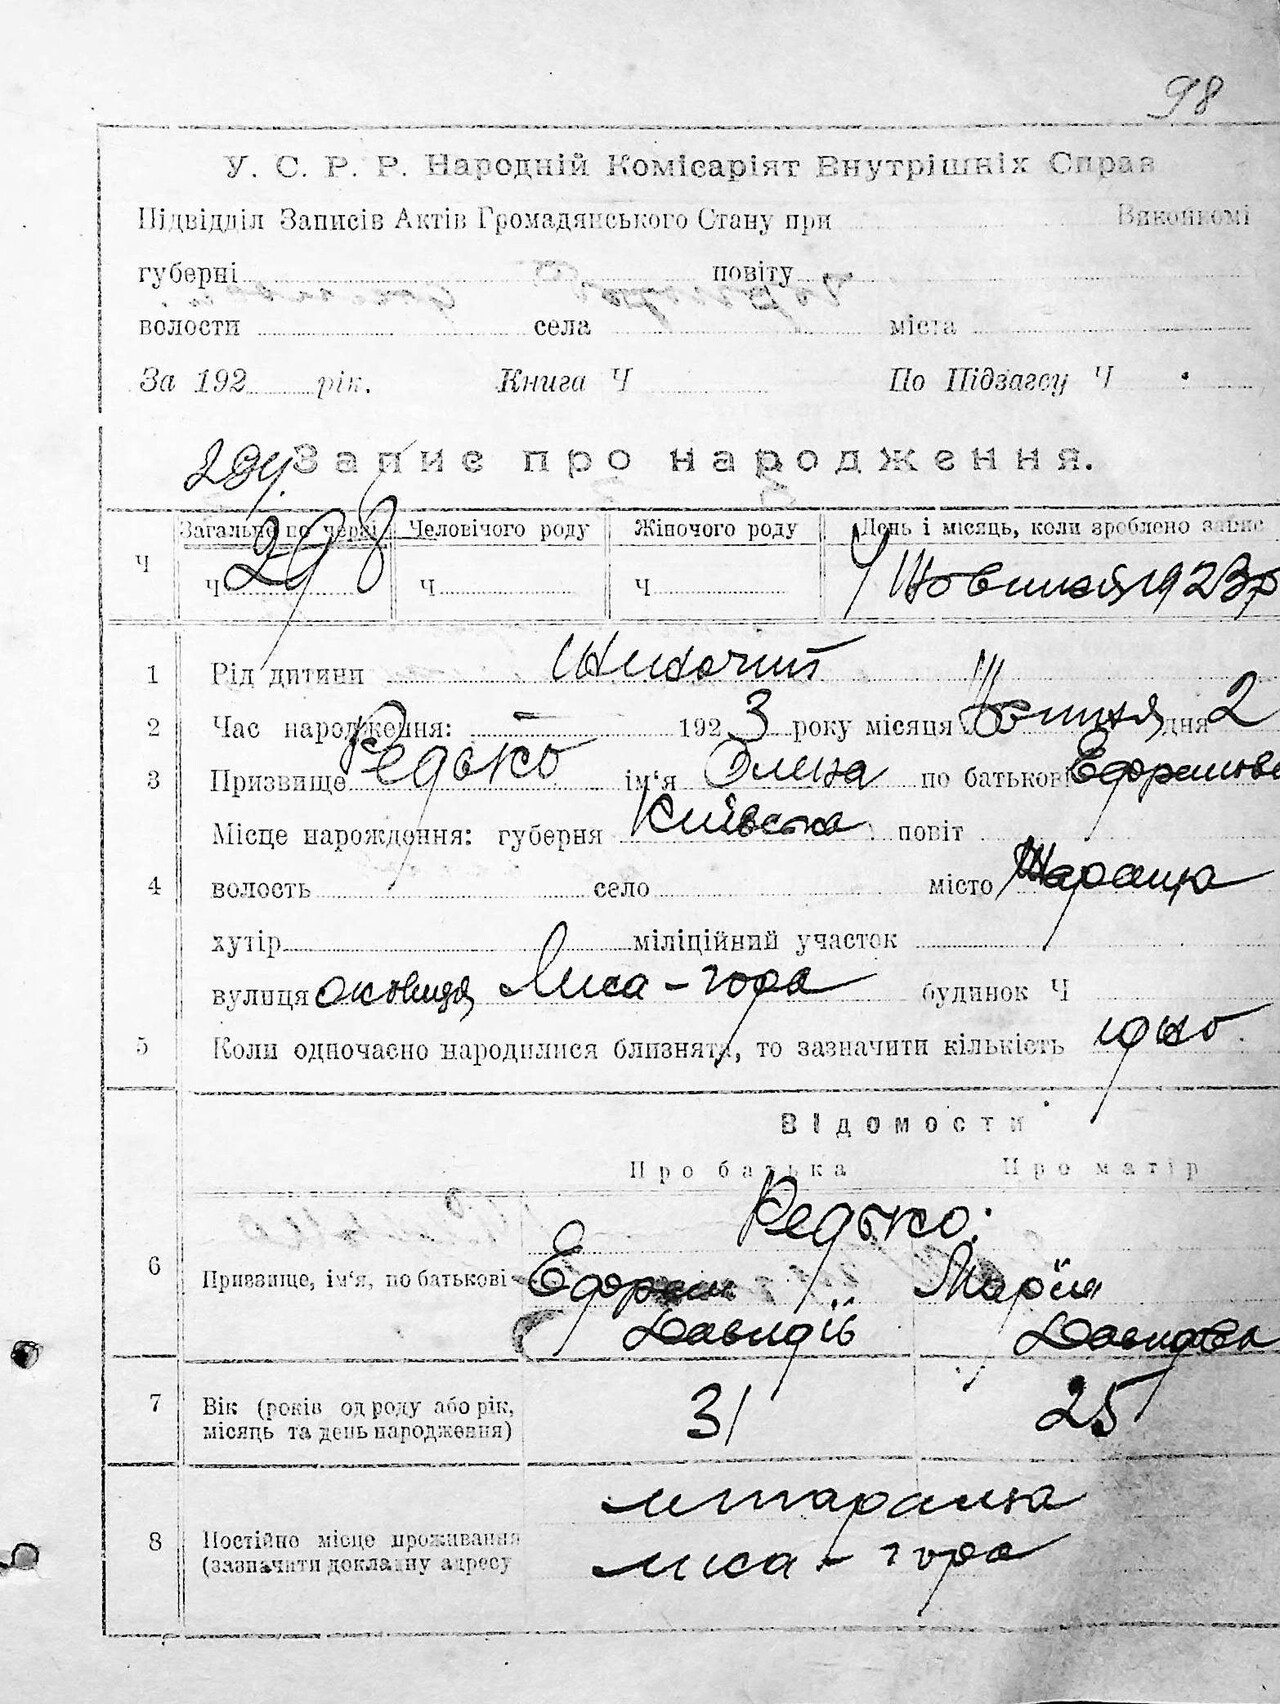 98
У. С. Р. Р. Народній Комісаріят Внутрішніх Справ
Підвідділ Записів Актів Громадянського Стану при Виконкомі
губерні повіту
волости села міста
За 192 рік. Книга Ч По Підзагсу Ч
294 Запис про народження.
Загально по черзі Человічого роду Жіночого роду День і місяць, коли зроблено запис
Ч Ч 298 Ч Ч 4 Жовтня 1923 р
1 Рід дитини Жіночий
2 Час народження: 192 3 року місяця Жовтня дня 2
3 Призвище Редько ім'я Олена по батькові
4 Місце нарождення: губерня Київська повіт
волость село місто Тараща
хутір міліційний участок
вулиця околиця Лиса-гора будинок Ч
5 Коли одночасно народилися близнята, то зазначити кількість одно.
Відомости
Про батька Про матір
Редько:
6 Призвище, ім'я, по батькові Ефрем Марія
Давидів Давидова
7 Вік (років од роду або рік, місяць та день народження) 31 25
8 Постійне місце проживання (зазначити докладну адресу м Тараща
лиса-гора